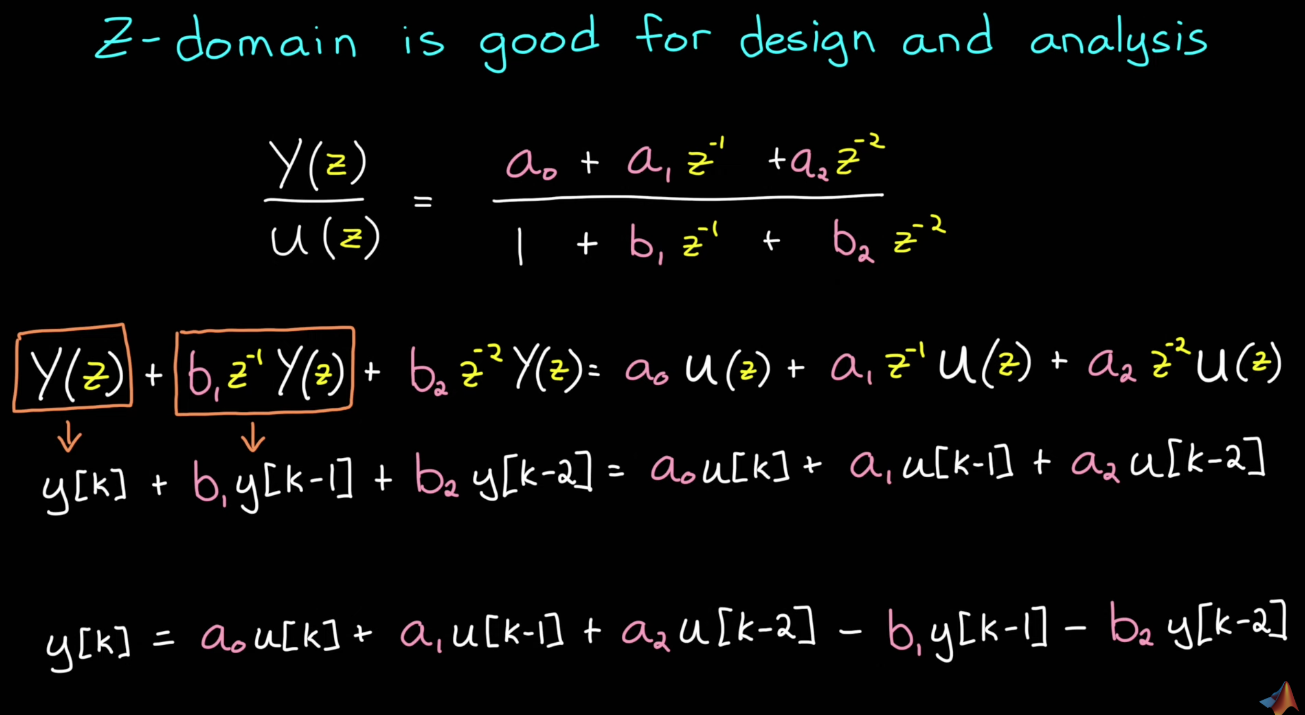 Z-domain is good for design and analysis
Y(z) / U(z) = (a₀ + a₁ z⁻¹ + a₂ z⁻²) / (1 + b₁ z⁻¹ + b₂ z⁻²)
Y(z) + b₁ z⁻¹ Y(z) + b₂ z⁻² Y(z) = a₀ U(z) + a₁ z⁻¹ U(z) + a₂ z⁻² U(z)
↓ ↓
y[k] + b₁ y[k-1] + b₂ y[k-2] = a₀ u[k] + a₁ u[k-1] + a₂ u[k-2]
y[k] = a₀ u[k] + a₁ u[k-1] + a₂ u[k-2] - b₁ y[k-1] - b₂ y[k-2]